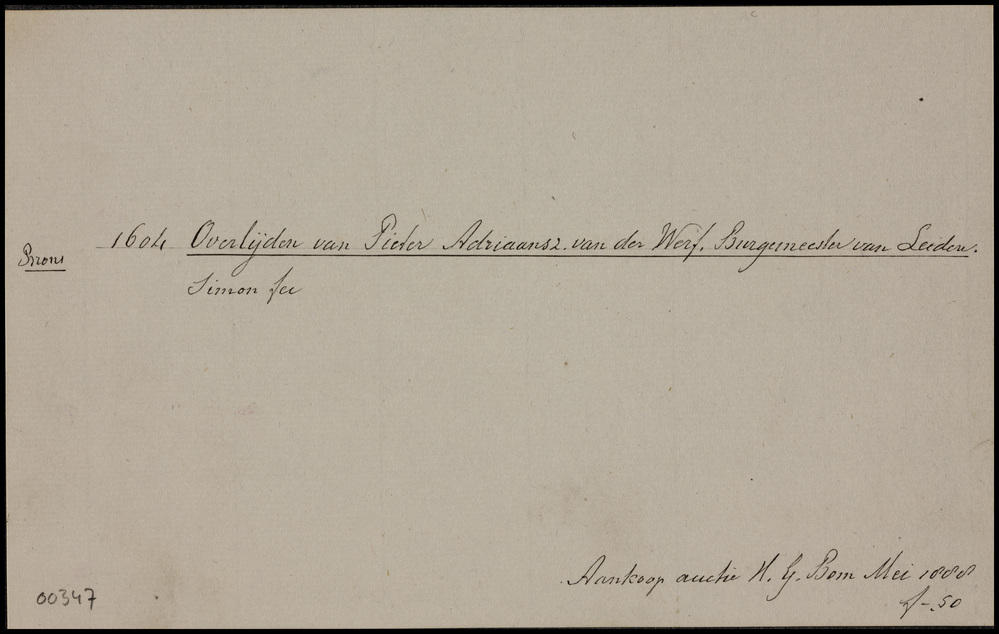 1604 Overlijden van Pieter Adriaansz. van der Werf, Burgemeester van Leiden.
Brons
Simon fec
Aankoop auctie H. G. Bom Mei 1888
f -.50
00347